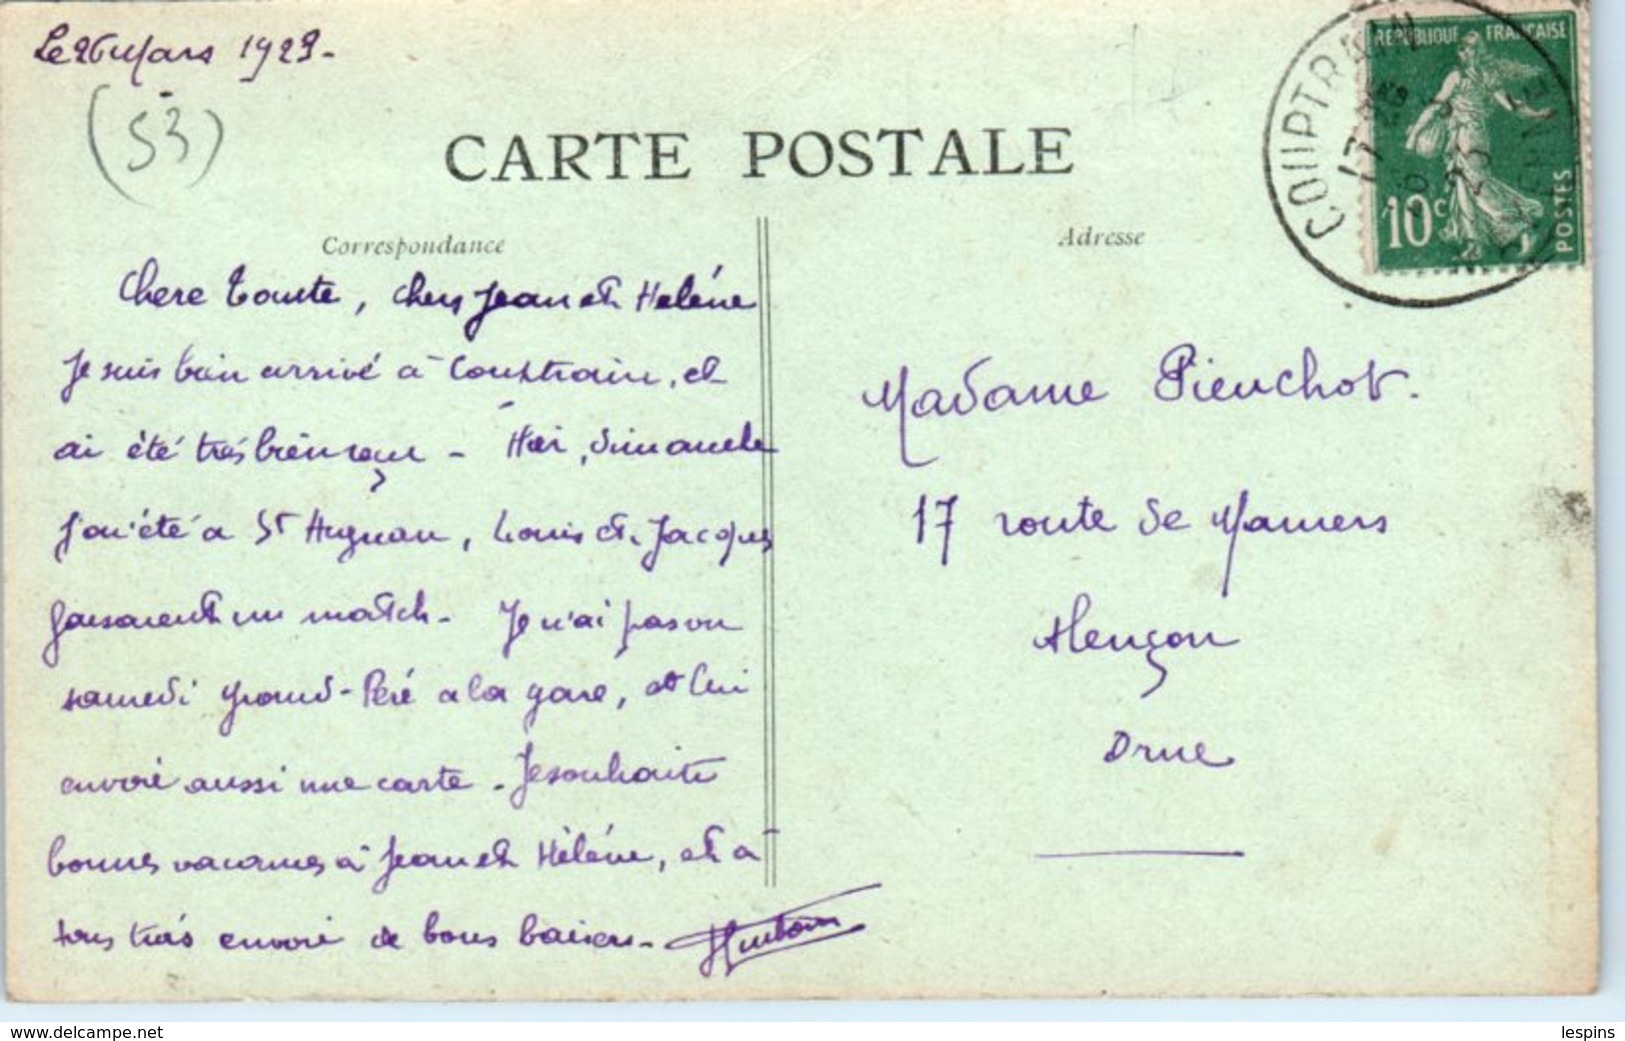 Le 26 Mars 1923-
(53)
CARTE POSTALE
Correspondance
Chere Tante, chers Jean et Heléne
Je suis bien arrivé à Couptrain, et
ai été trés bien reçu - Hier, dimanche
j'ai été a St Aignan, Louis et Jacques
faisaient un match. Je n'ai pas vu
samedi grand-Péré a la gare, et lui
envoie aussi une carte. Je souhaite
bonnes vacances à Jean et Héléne, et à
tous trés envoie de bons baisers-
Adresse
Madame Pieuchot.
17 route de Mamers
Alençon
Orne
COUPTRAIN
17
26
3
23
MAYENNE
REPUBLIQUE FRANCAISE
10c
POSTES
www.delcampe.net
lespins